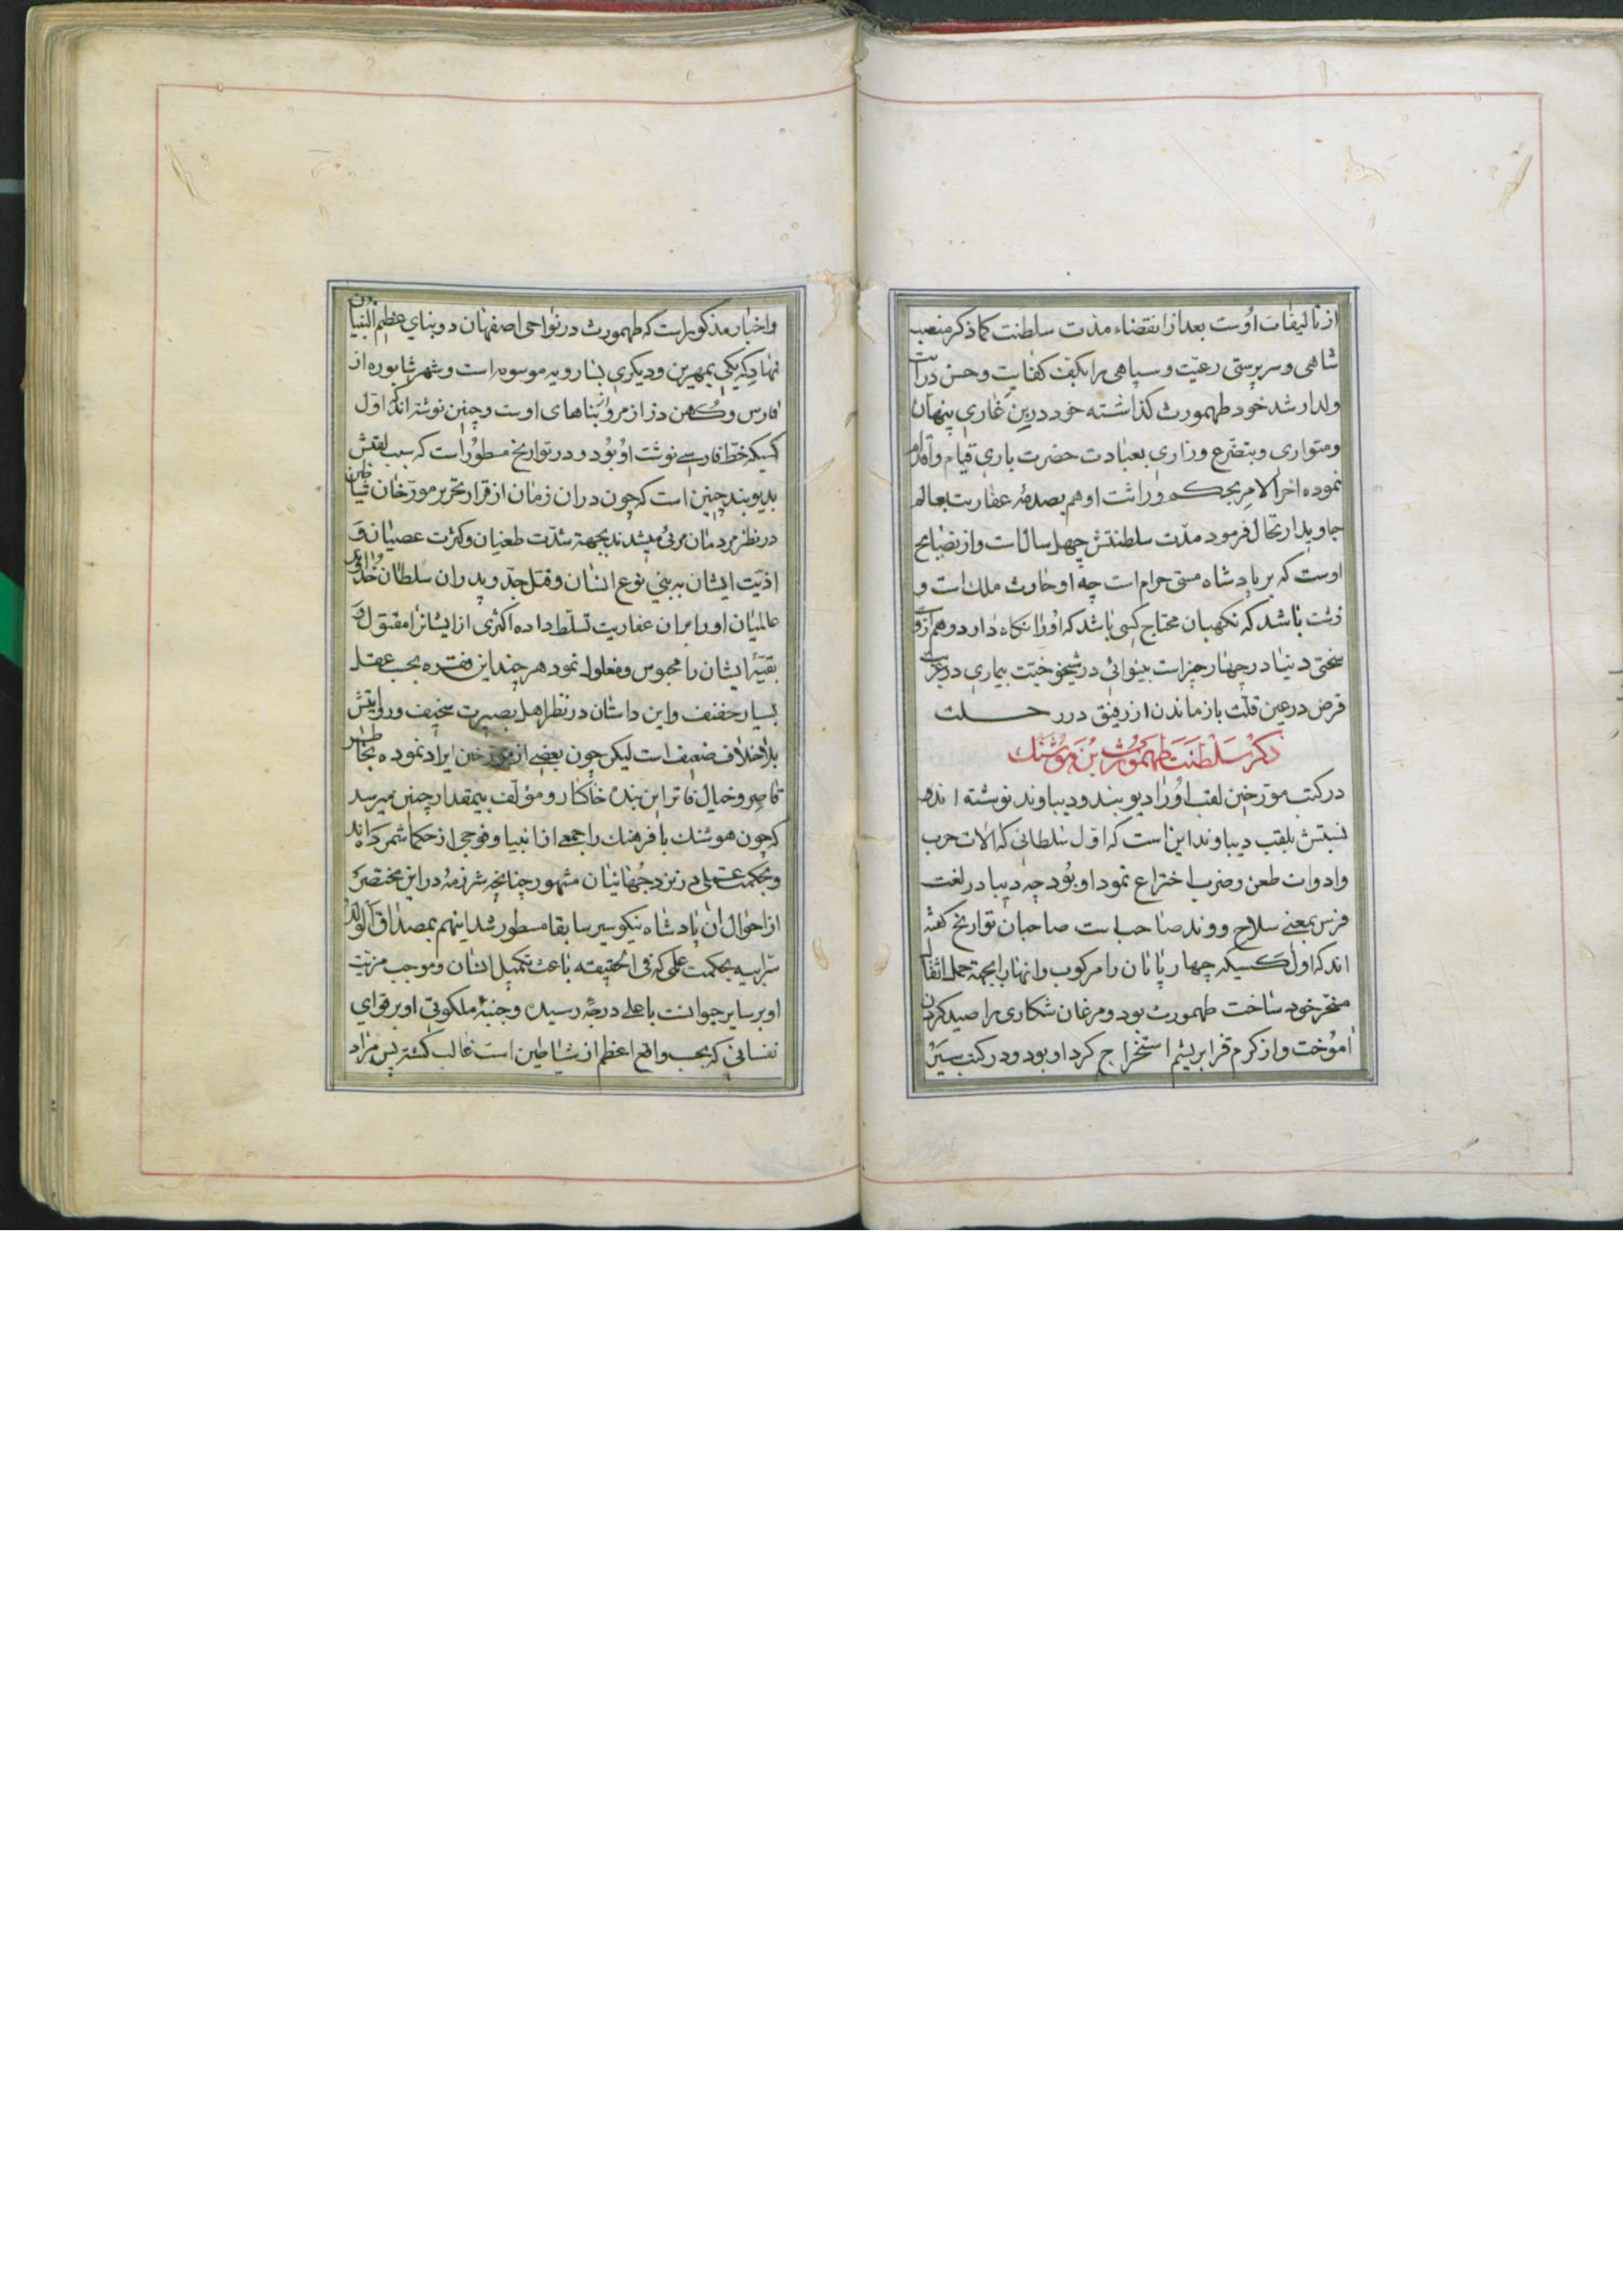 از تالیفات اوست بعد از انقضاء مدت سلطنت کما ذکر منصب
شاهی و سرپرستی رعیت و سپاهی را بکف کفایت و حسن درایت
ولد ارشد خود طهمورث کذاشته خود در بن غاری پنهان
و متواری و بتضرع و زاری بعبادت حضرت باری قیام و اقدام
نموده اخر الامر بحکم وراثت او هم بصدمهٔ عفاریت بعالم
جاوید ارتحال فرمود مدّت سلطنتش چهل سال است و از نصایح
اوست که بر پادشاه مستی حرام است چه او حارث ملک است و
زشت باشد که نکهبان محتاج کسی باشد که او را نکاه دارد و هم از وَ
سختی دنیا در چهار چیز است بینوائی در شیخوخیّت بیماری در غربت
قرض در عین قلّت بازماندن از رفیق در رحلت
ذکر سلطنت طهمورث بن هوشنک
در کتب مورّخین لقب او را دیوبند و دیباوند نوشته اند و
نسبتش بلقب دیباوند این است که اوّل سلطانی که الات حرب
و ادوات طعن و ضرب اختراع نمود او بود چه دیبا در لغت
فرس بمعنی سلاح و وند صاحب است صاحبان تواریخ کفته
اند که اول کسیکه چهارپایان را مرکوب و انها را بجهة حمل اثقال
مسخّر خود ساخت طهمورث بود و مرغان شکاری را صید کردن
اموخت و از کرم قز ابریشم استخراج کرد او بود و در کتب سیَر
و اخبار مذکور است که طهمورث در نواحی اصفهان دو بنای عظیم البنیان
نهاد که یکی بمهرین و دیکری بسارویه موسوم است و شهر شاپوره از
فارس و کهن دز از مرو از بناهای اوست و چنین نوشته اند که اوّل
کسیکه خطّ فارسی نوشت او بود و در تواریخ مسطور است که سبب لقبش
بدیوبند چنین است که چون در ان زمان از قرار تحریر مورّخان شیاطین
در نظر مردمان مرئی میشدند بجهة شدّت طغیان و کثرت عصیان و
اذیّت ایشان به بنی نوع انسان و قتل جدّ و پدر ان سلطان خداوند
عالمیان او را بر ان عفاریت تسلّط داده اکثری از ایشانرا مقتول و
بقیّهٔ ایشان را محبوس و مغلول نمود هر چند این فقره بحسب عقل
بسیار خفیف و این داستان در نظر اهل بصیرت سخیف و روایتش
بلا خلاف ضعیف است لیکن چون بعضی از مورّخین ایراد نموده بخاطر
قاصر و خیال فاتر این بنده خاکسار و مؤلّف بیمقدار چنین میرسد
که چون هوشنک با فرهنک را جمعی از انبیا و فوجی از حکما شمرده اند
و بحکمت عملی در نزد جهانیان مشهور چنانچه شرذمهٔ در این مختصر
از احوال ان پادشاه نیکو سیر سابقا مسطور شد اینهم بمصداق الولد
سرّ ابیه بحکمت علمی که فی الحقیقه باعث تکمیل انسان و موجب مزیّت
او بر سایر حیوانست باعلی درجه رسیده و جنبهٔ ملکوتی او بر قوای
نفسانی که بحسب واقع اعظم از شیاطین است غالب کشته پس مراد